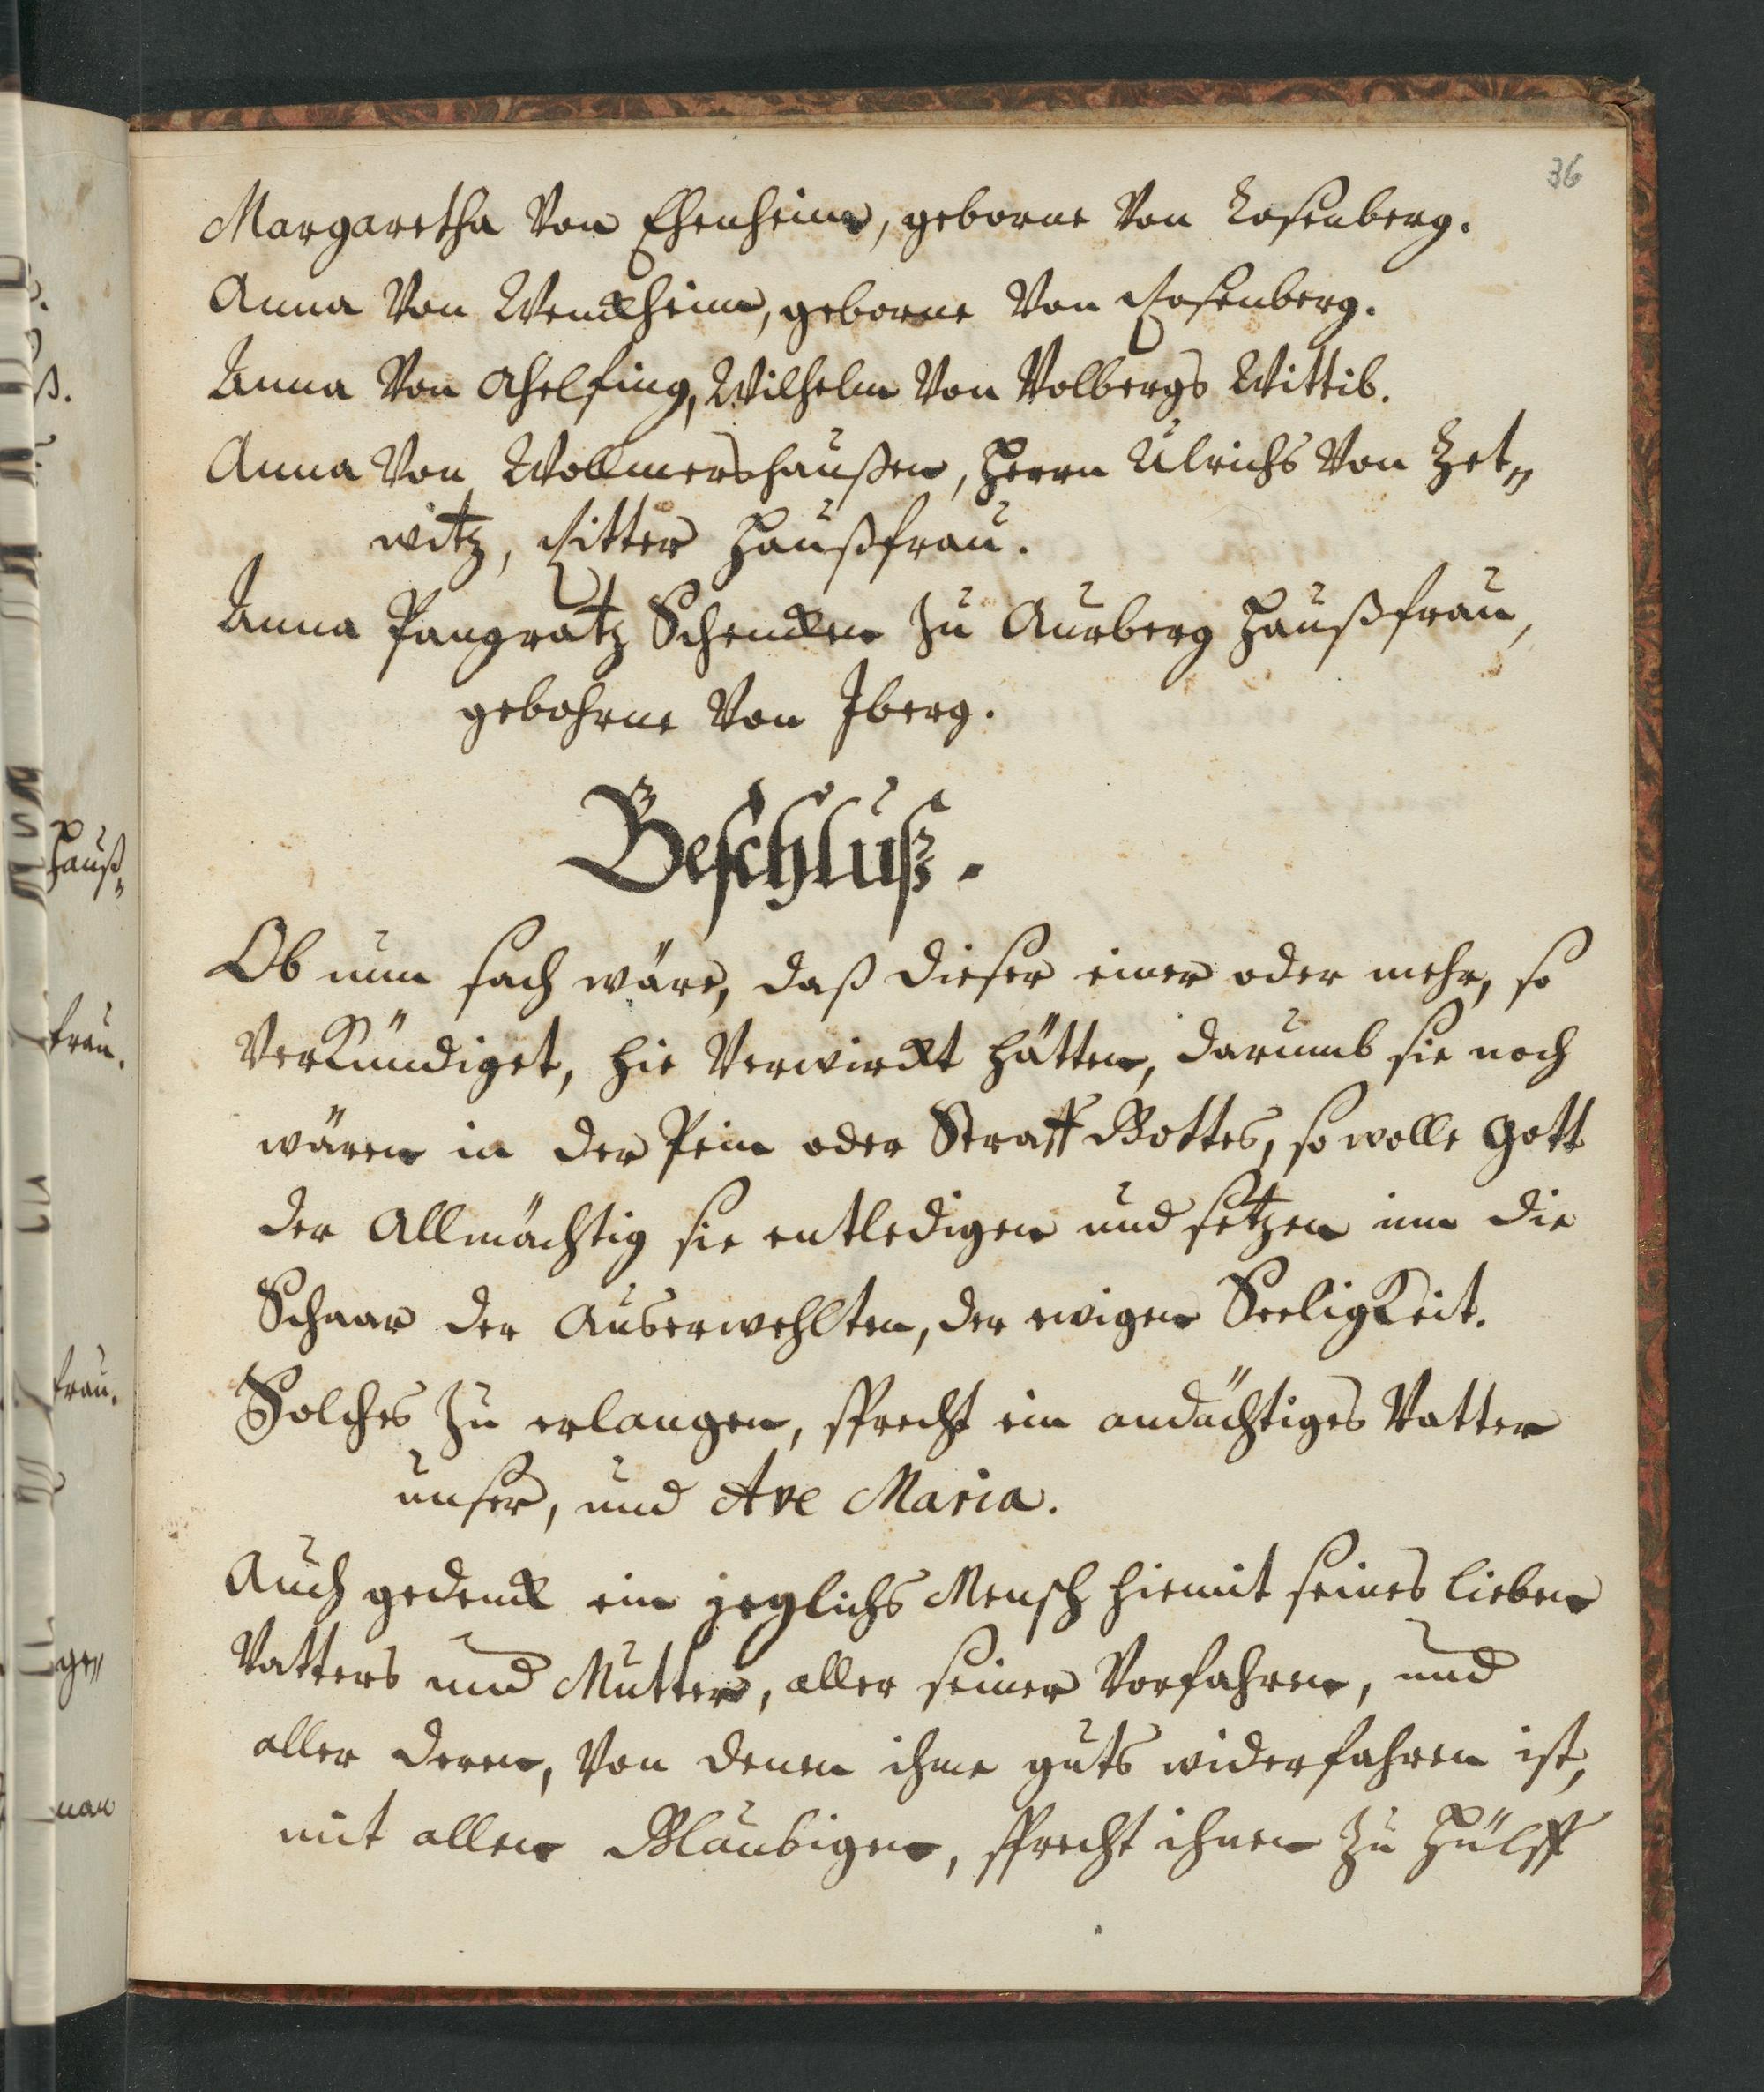 36
Margaretha von Ehenheim, geborne von Rosenberg.
Anna von Wenckheim, geborne von Rosenberg.
Anna von Ahelfing, Wilhelm von Volbergs Wittib.
Anna von Wollmershaußen, Herrn Ulrichs von Zet„
witz, Ritter Haußfrau.
Anna Pangratz Schencken zu Aurberg Haußfrau,
gebohrne von Iberg.
Beschluß.
Ob nun sach wäre, daß dieser einer oder mehr, so
verkündiget, hie verwirckt hätten, darumb sie noch
wären in der Pein oder Straff Gottes, so wolle Gott
der Allmächtig sie entledigen und setzen inn die
Schaar der Auserwehlten, der ewigen Seeligkeit.
Solches zu erlangen, sprecht ein andächtiges Vatter
unser, und Ave Maria.
Auch gedenck ein jeglichs Mensch hiemit seines lieben
Vatters und Mutter, aller seiner Vorfahren, und
aller deren, von denen ihme guts widerfahren ist,
mit allen Gläubigen, sprecht ihnen zu Hülff
Hauß„
frau.
frau.
ge„